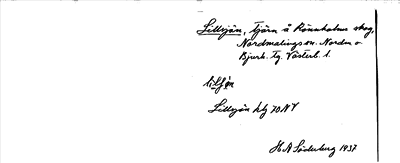 Lillsjön, tjärn å Rönnholms skog,
Nordmalings sn. Nordm. o
Bjurh. tg. Västerb. l.
Lillsjön htg 70 NV
H. A. Söderberg 1937